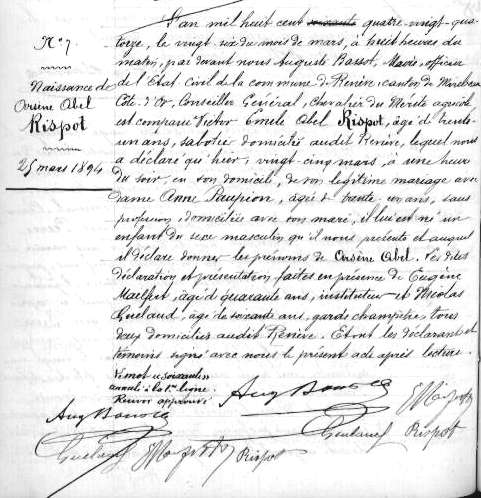 N° 7
Naissance de
Arsène Abel
Rispot
25 mars 1894
L'an mil huit cent soixante quatre-vingt-qua-
torze, le vingt six du mois de mars, à huit heures du
matin, par devant nous Auguste Bassot, Maire, officier
de l'Etat Civil de la commune de Renève, canton de Mirebeau
Côte-d'Or, Conseiller Général, Chevalier du Mérite agricole
est comparu Victor Emile Abel Rispot, âgé de trente-
un ans, sabotier domicilié audit Renève, lequel nous
a déclaré que hier, vingt-cinq mars, à une heure
du soir, en son domicile, de son légitime mariage avec
dame Anne Paupion, âgée de trente un ans, sans
profession, domiciliée avec son mari, il lui est né un
enfant du sexe masculin qu'il nous présente et auquel
il déclare donner les prénoms de Arsène Abel. Les dites
déclaration et présentation faites en présence de Eugène
âgé de quarante ans, instituteur et Nicolas
Guelaud, âgé de soixante ans, garde champêtre, tous
deux domiciliés audit Renève. Et ont les déclarant et
témoins signé avec nous le présent acte après lecture.
Le mot « soixante »
annulé à la 1re ligne.
Renvoi approuvé
Aug Bassot
Aug Bassot
Guelaud
Rispot
Guelaud
Rispot